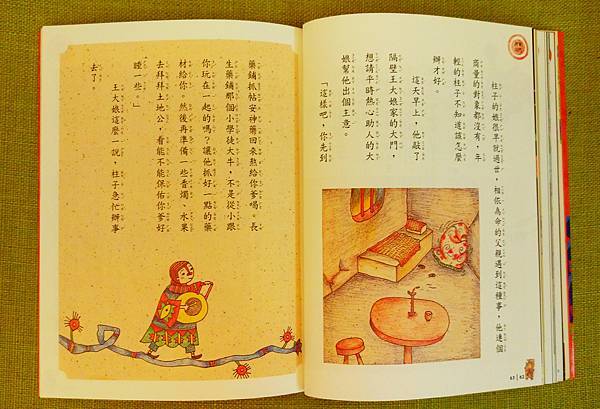 柱子的娘很早就過世，相依為命的父親遇到這種事，他連個
商量的對象都沒有，年
輕的柱子不知道該怎麼
辦才好。
這天早上，他敲了
隔壁王大娘家的大門，
想請平時熱心助人的大
娘幫他出個主意。
「這樣吧，你先到
藥鋪抓帖安神藥回來熬給你爹喝。長
生藥鋪那個小學徒大牛，不是從小跟
你玩在一起的嗎？讓他抓好一點的藥
材給你。然後再準備一些香燭、水果
去拜拜土地公，看能不能保佑你爹好
睡一些。」
王大娘這麼一說，柱子急忙辦事
去了。
63 | 62